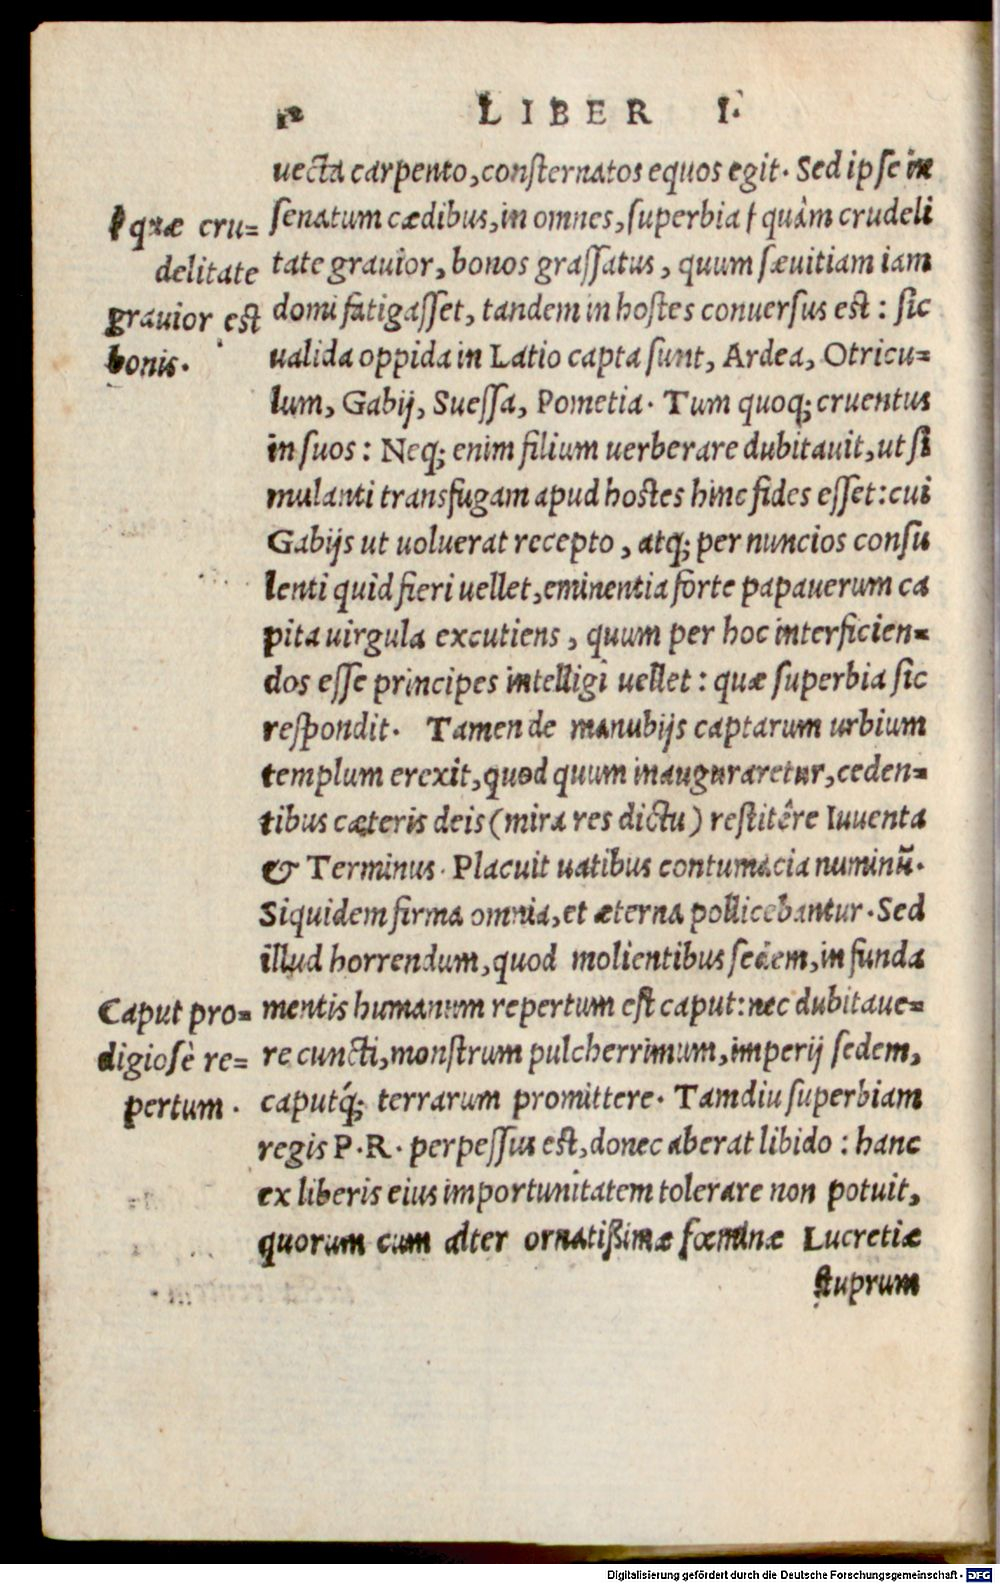 LIBER I.
uecta carpento, consternatos equos egit. Sed ipse in
senatum cædibus, in omnes, superbia † quâm crudeli
tate grauior, bonos grassatus, quum sæuitiam iam
domi fatigasset, tandem in hostes conuersus est: sic
ualida oppida in Latio capta sunt, Ardea, Otricu-
lum, Gabij, Suessa, Pometia. Tum quoq; cruentus
in suos: Neq; enim filium uerberare dubitauit, ut si
mulanti transfugam apud hostes hinc fides esset: cui
Gabijs ut uoluerat recepto, atq; per nuncios consu
lenti quid fieri uellet, eminentia forte papauerum ca
pita uirgula excutiens, quum per hoc interficien-
dos esse principes intelligi uellet: quæ superbia sic
respondit. Tamen de manubijs captarum urbium
templum erexit, quod quum inauguraretur, ceden-
tibus cæteris deis (mira res dictu) restitêre Iuuenta
& Terminus. Placuit uatibus contumacia numinũ.
Siquidem firma omnia, et æterna pollicebantur. Sed
illud horrendum, quod molientibus sedem, in funda
mentis humanum repertum est caput: nec dubitaue-
re cuncti, monstrum pulcherrimum, imperij sedem,
caputq́; terrarum promittere. Tamdiu superbiam
regis P. R. perpessus est, donec aberat libido: hanc
ex liberis eius importunitatem tolerare non potuit,
quorum cum alter ornatißimæ fœminæ Lucretiæ
stuprum
† quæ cru-
delitate
grauior est
bonis.
Caput pro-
digiosè re-
pertum.
Digitalisierung gefördert durch die Deutsche Forschungsgemeinschaft - DFG